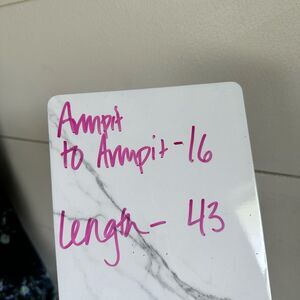 Armpit
to Armpit - 16
Length - 43